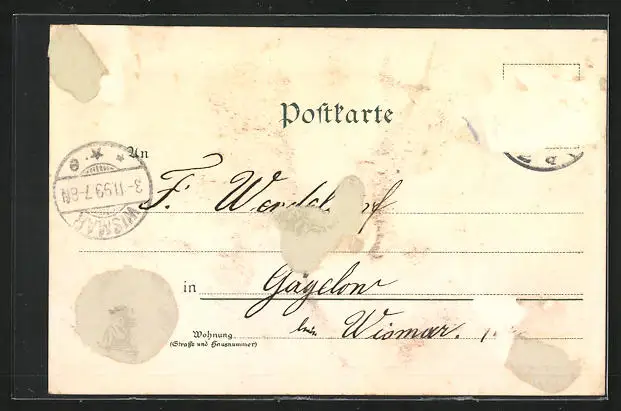 Postkarte
An
WISMAR
F. Wendel rf
in Gägelow
bei Wismar.
Wohnung
(Straße und Hausnummer)